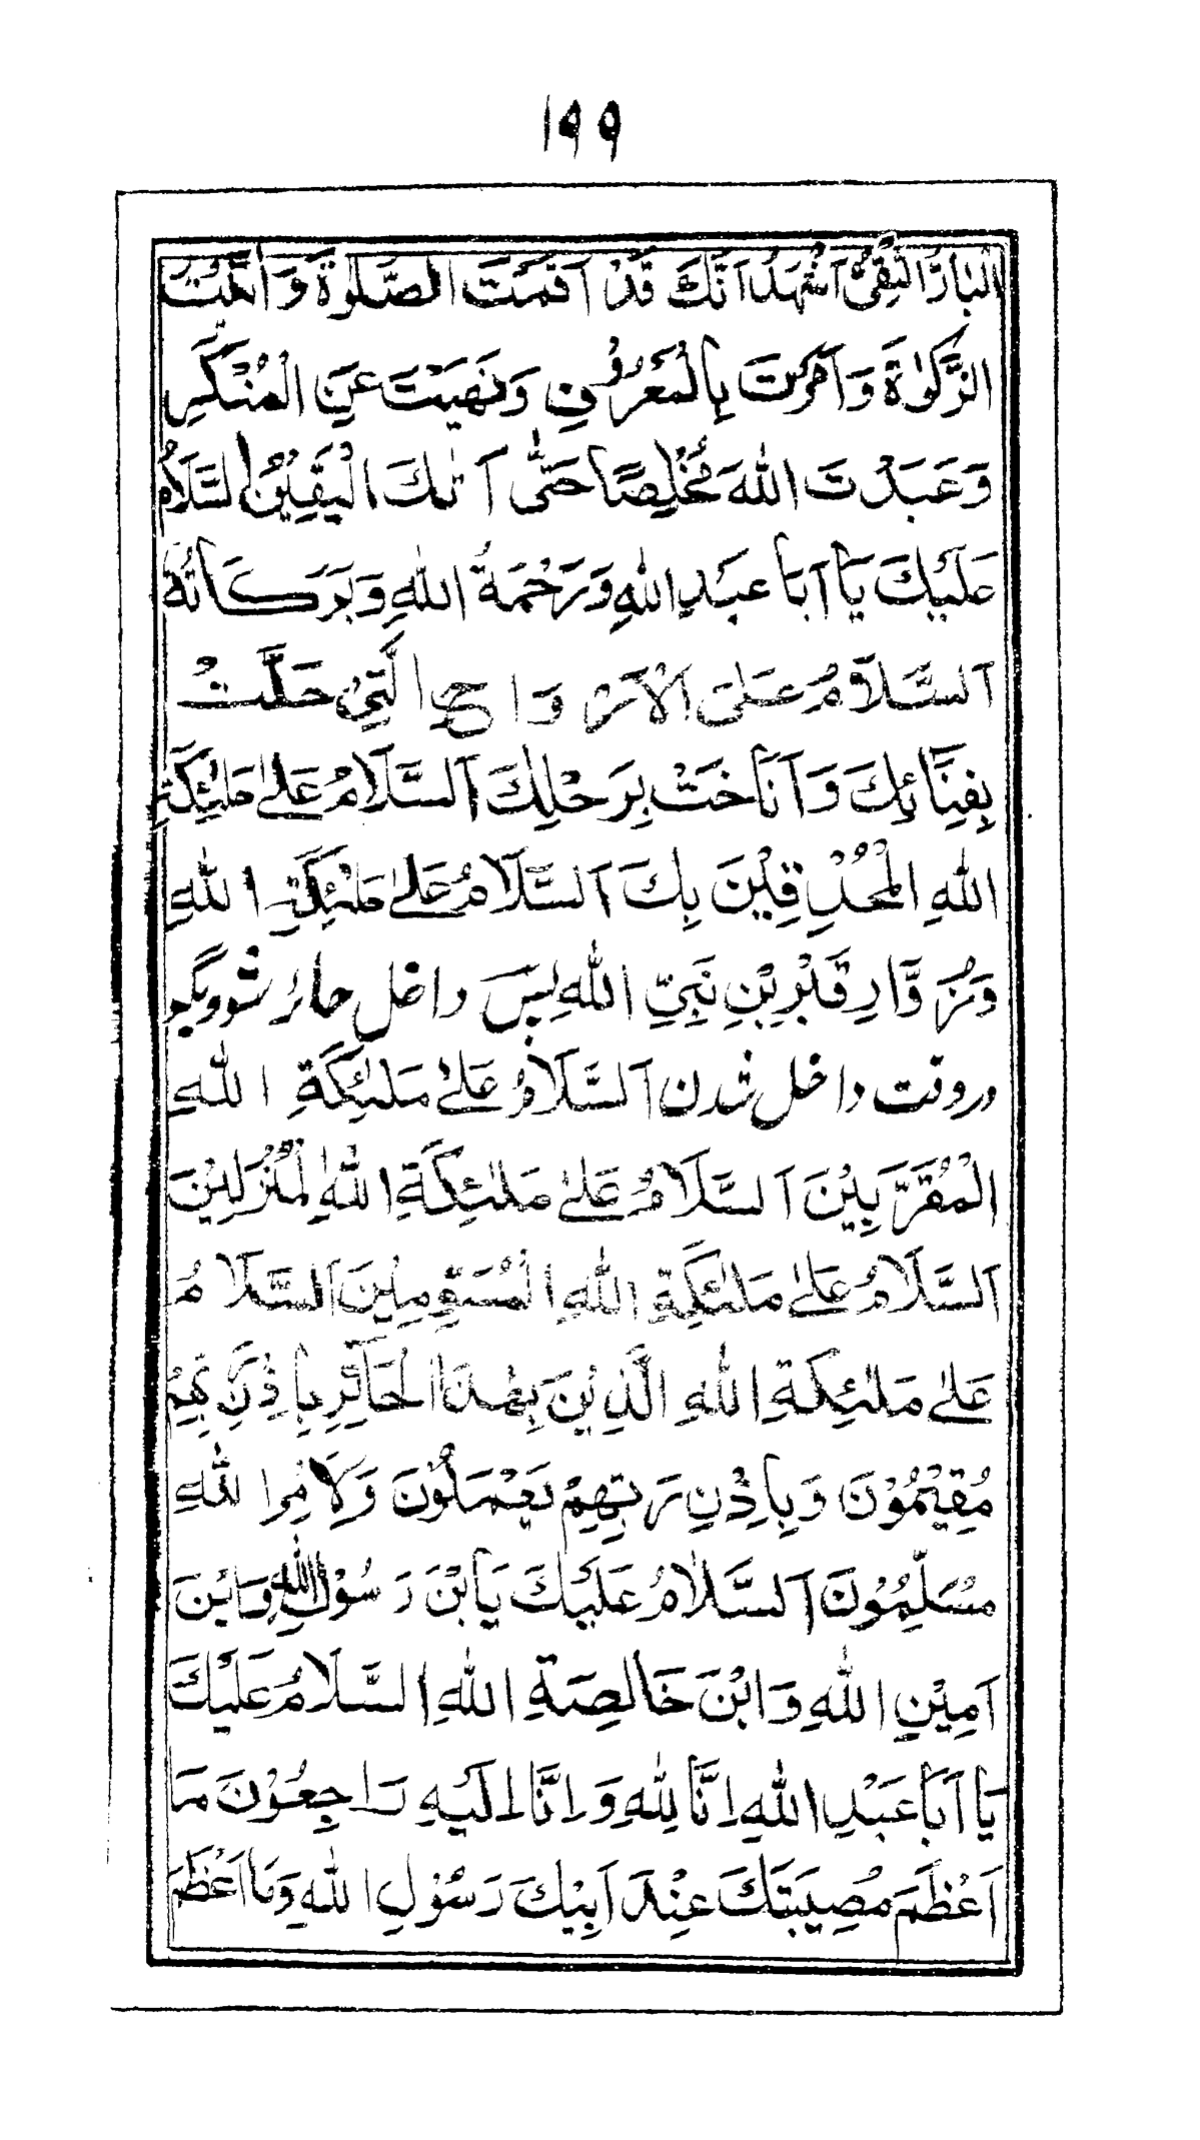 ۱۹۹
الْبَارُّ التَّقِىُّ اَشْهَدُ اَنَّكَ قَدْ اَقَمْتَ الصَّلٰوةَ وَ اٰتَيْتَ
الزَّكٰوةَ وَ اَمَرْتَ بِالْمَعْرُوْفِ وَ نَهَيْتَ عَنِ الْمُنْكَرِ
وَ عَبَدْتَ اللّٰهَ مُخْلِصًا حَتّٰى اَتٰىكَ الْيَقِيْنُ السَّلَامُ
عَلَيْكَ يَا اَبَا عَبْدِ اللّٰهِ وَ رَحْمَةُ اللّٰهِ وَ بَرَكَاتُهُ
اَلسَّلَامُ عَلَى الْاَرْوَاحِ الَّتِىْ حَلَّتْ
بِفِنَائِكَ وَ اَنَاخَتْ بِرَحْلِكَ اَلسَّلَامُ عَلٰى مَلٰئِكَةِ
اللّٰهِ الْمُحْدِقِيْنَ بِكَ اَلسَّلَامُ عَلٰى مَلٰئِكَةِ اللّٰهِ
وَ زُوَّارِ قَبْرِ بْنِ نَبِىِّ اللّٰهِ پس داخل حائر شو و بگو
در وقت داخل شدن اَلسَّلَامُ عَلٰى مَلٰئِكَةِ اللّٰهِ
الْمُقَرَّبِيْنَ اَلسَّلَامُ عَلٰى مَلٰئِكَةِ اللّٰهِ الْمُنْزَلِيْنَ
اَلسَّلَامُ عَلٰى مَلٰئِكَةِ اللّٰهِ الْمُسَوِّمِيْنَ اَلسَّلَامُ
عَلٰى مَلٰئِكَةِ اللّٰهِ الَّذِيْنَ بِهٰذَا الْحَائِرِ بِاِذْنِ رَبِّهِمْ
مُقِيْمُوْنَ وَ بِاِذْنِ رَبِّهِمْ يَعْمَلُوْنَ وَ لِاَمْرِ اللّٰهِ
مُسَلِّمُوْنَ اَلسَّلَامُ عَلَيْكَ يَابْنَ رَسُوْلِ اللّٰهِ وَ ابْنَ
اَمِيْنِ اللّٰهِ وَ ابْنَ خَالِصَةِ اللّٰهِ السَّلَامُ عَلَيْكَ
يَا اَبَا عَبْدِ اللّٰهِ اِنَّا لِلّٰهِ وَ اِنَّا اِلَيْهِ رَاجِعُوْنَ مَا
اَعْظَمَ مُصِيْبَتَكَ عِنْدَ اَبِيْكَ رَسُوْلِ اللّٰهِ وَ مَا اَعْظَمَ